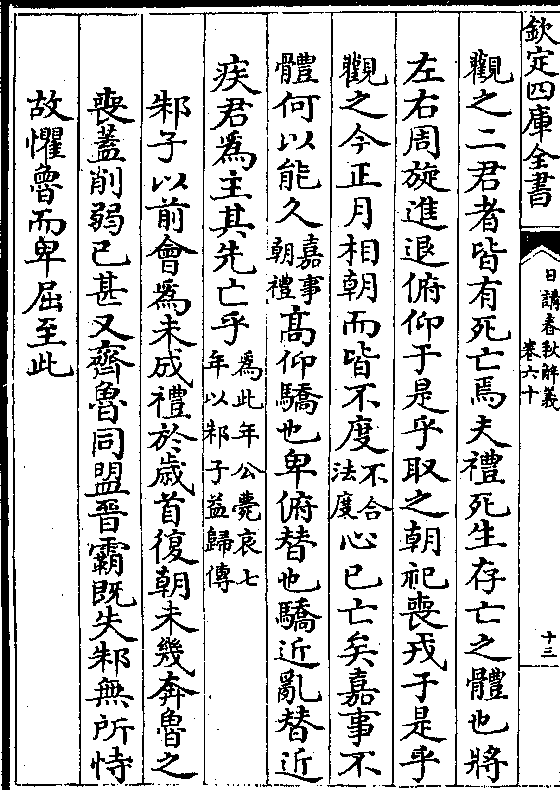 欽定四庫全書
日講春秋解義
卷六十
十三
觀之二君者皆有死亡焉夫禮死生存亡之體也將
左右周旋進退俯仰于是乎取之朝祀喪戎于是乎
觀之今正月相朝而皆不度不合法度心已亡矣嘉事不
體何以能久嘉事朝禮高仰驕也卑俯替也驕近亂替近
疾君為主其先亡乎為此年公薨哀七年以邾子益歸傳
邾子以前會為未成禮於歲首復朝未幾奔魯之
喪蓋削弱已甚又齊魯同盟晉霸既失邾無所恃
故懼魯而卑屈至此